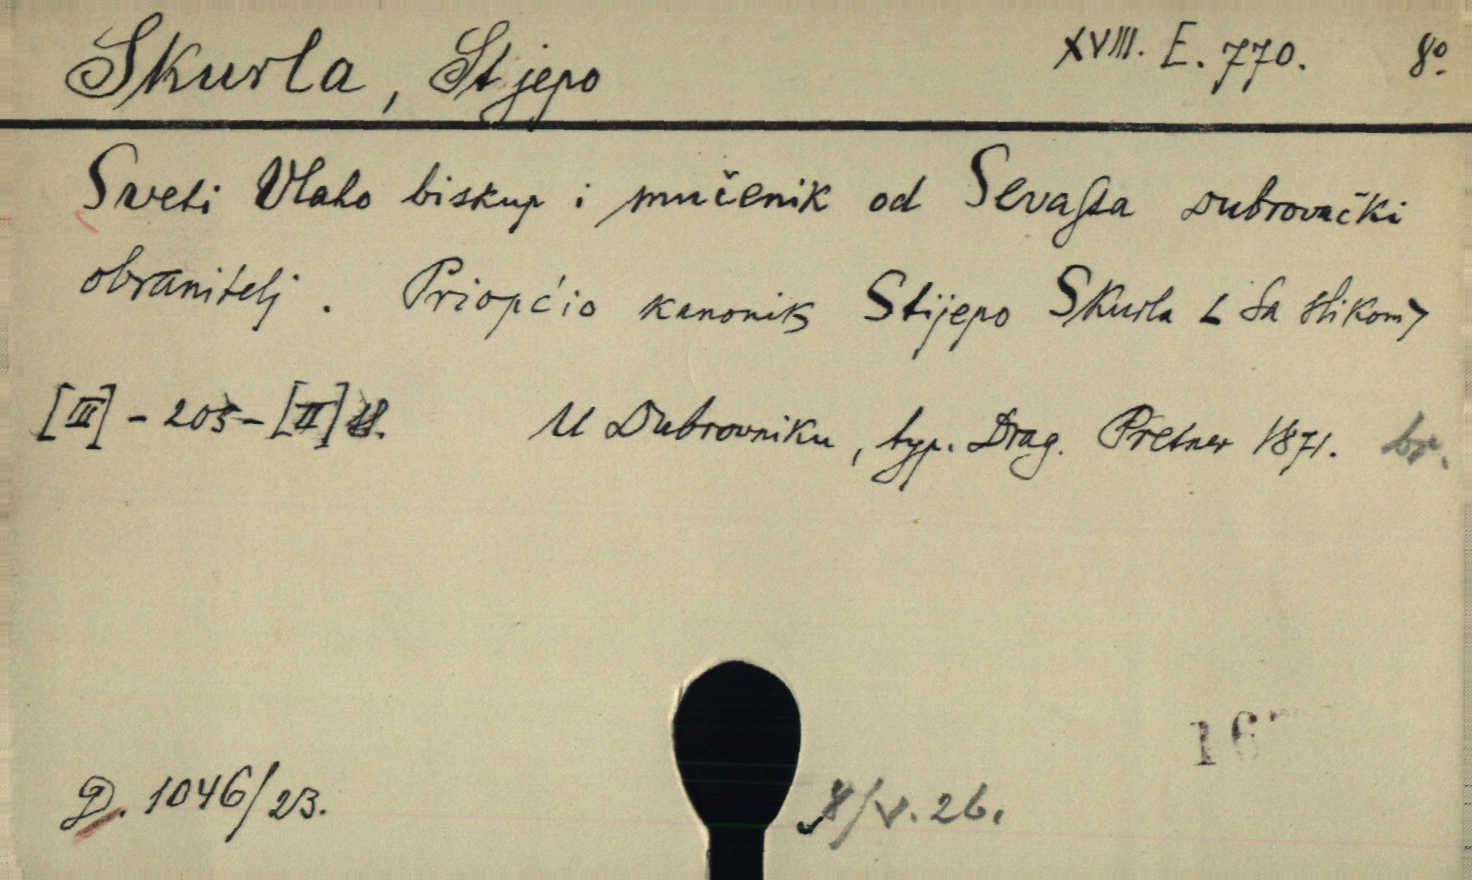 Skurla, Stjepo XVIII. E. 770. 8º.
Sveti Vlaho biskup i mučenik od Sevasta dubrovački
obranitelj. Priopćio kanonik Stijepo Skurla < Sa slikom>
[III] - 205 - [II]
U Dubrovniku, typ. Drag. Pretner 1871. br.
D. 1046/23. 8/V. 26.